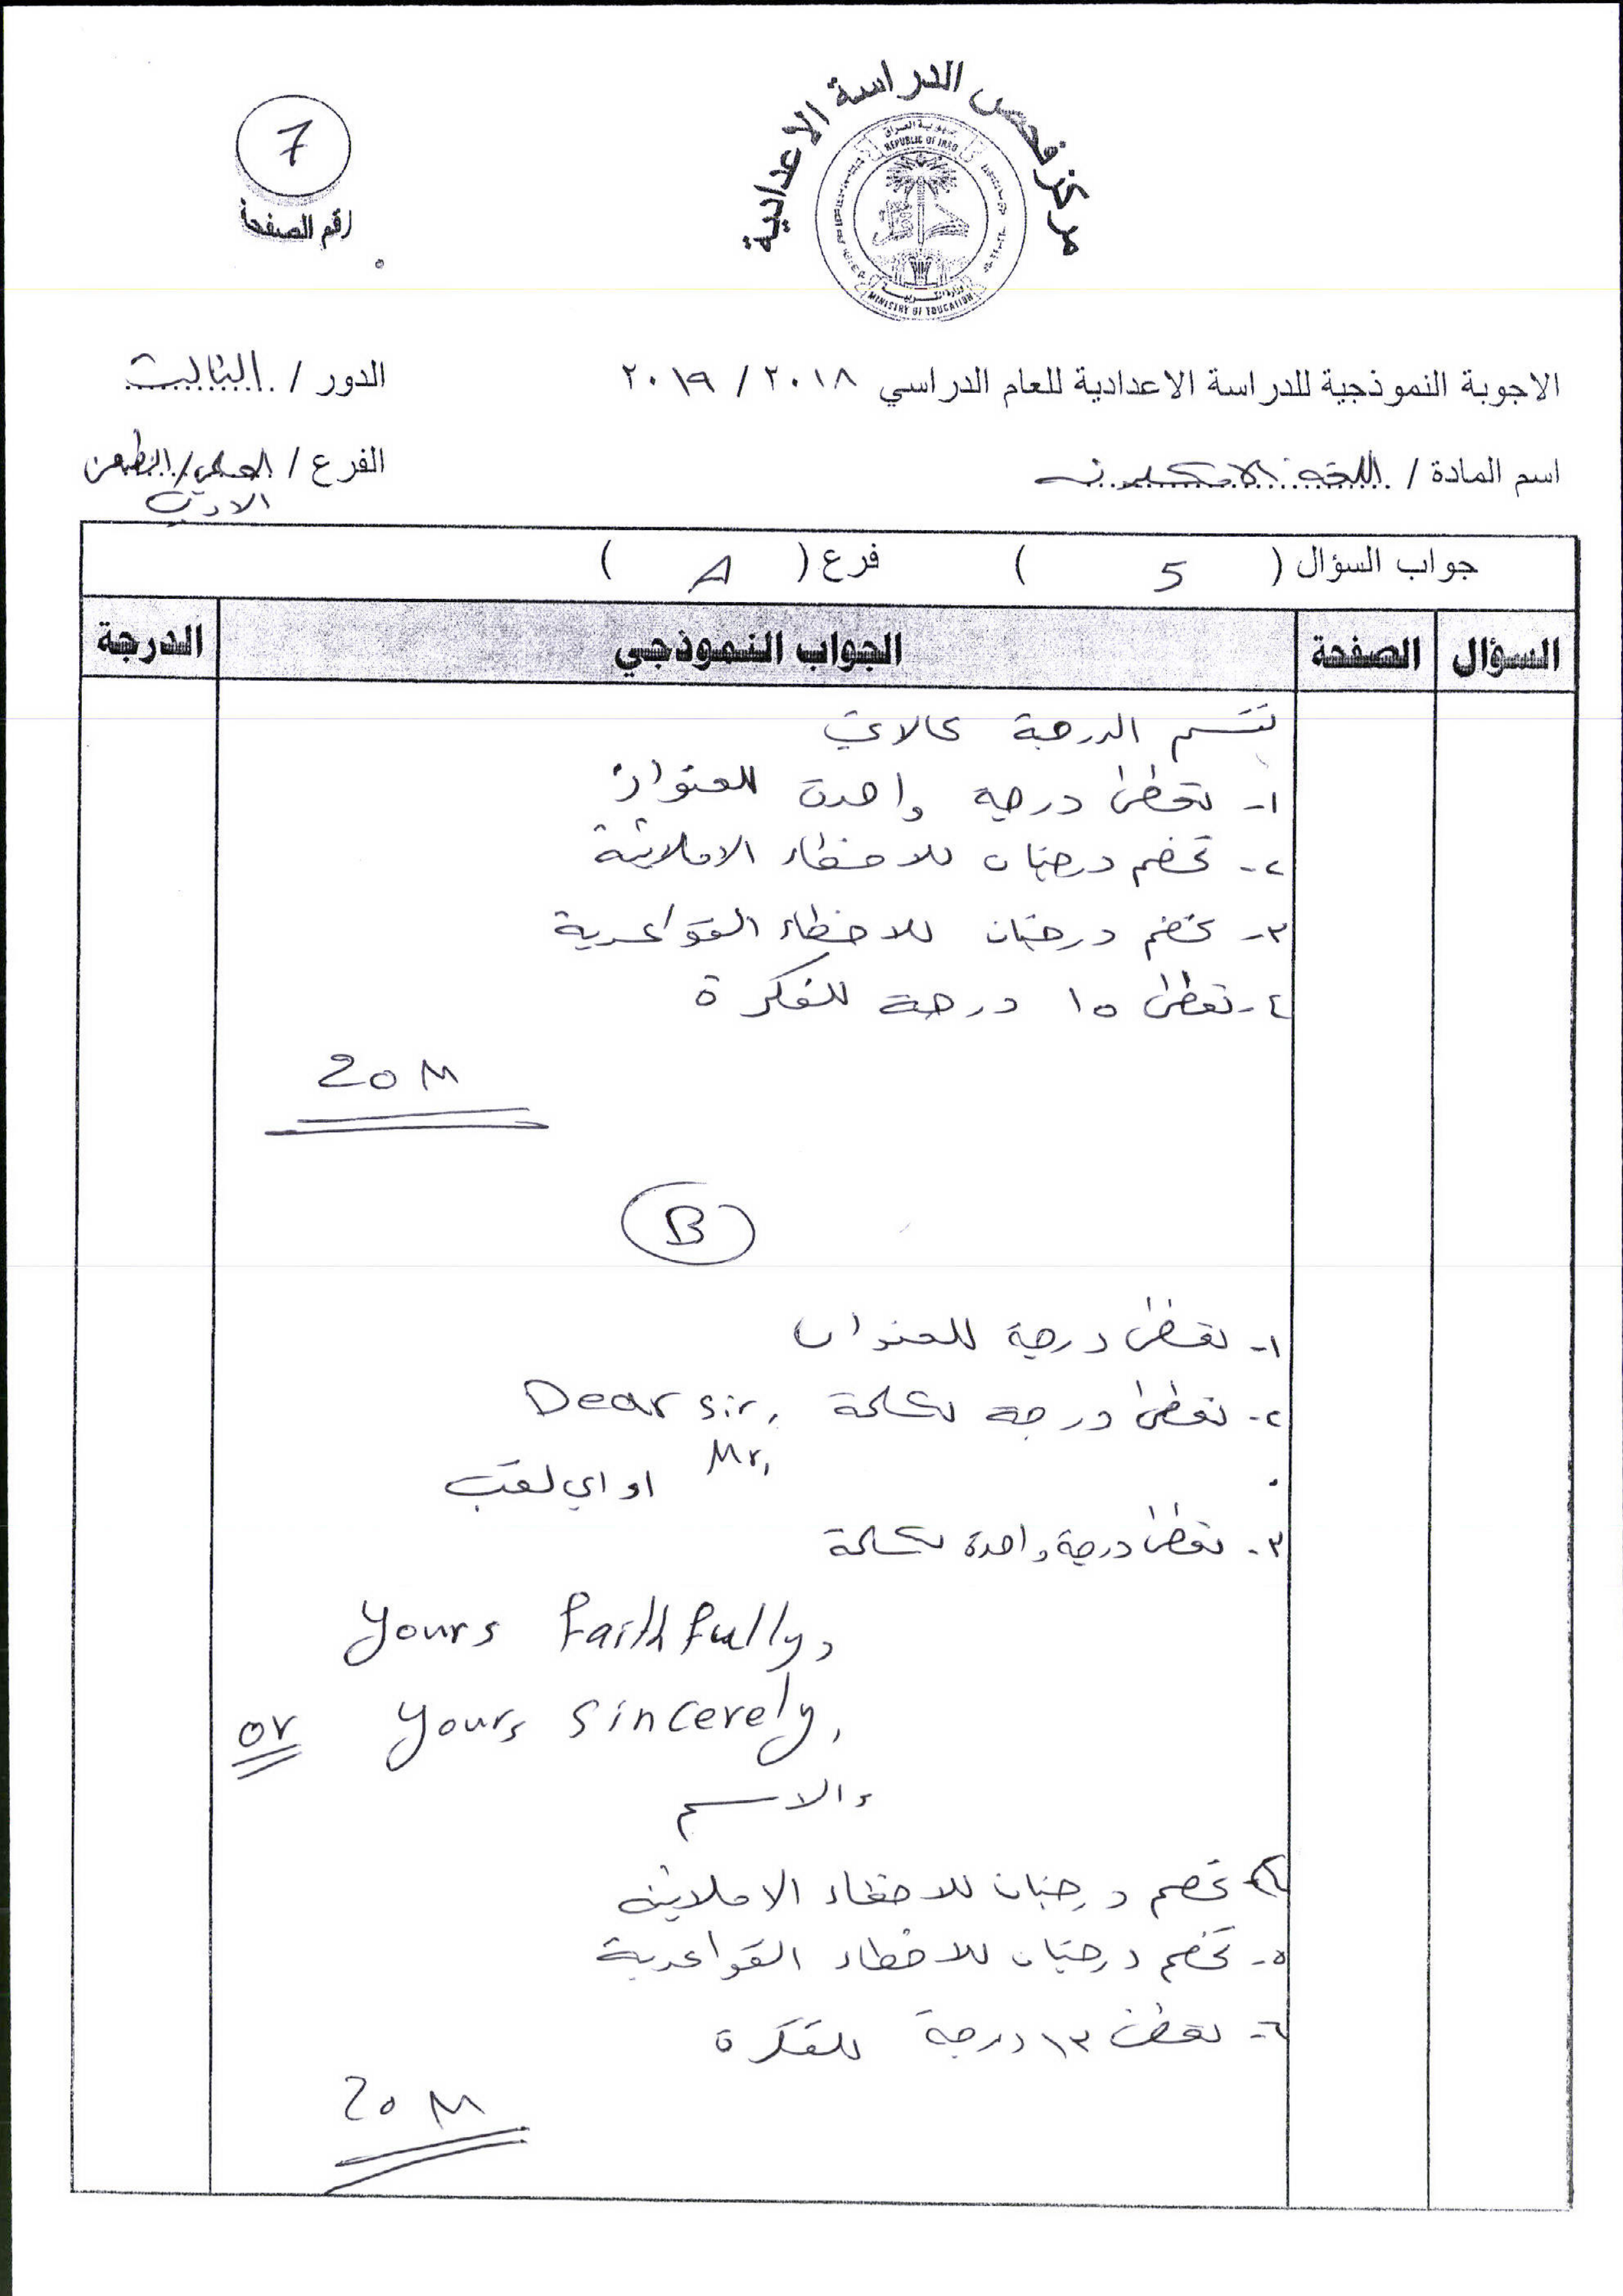 مركز فحص الدراسة الاعدادية
جمهورية العراق
REPUBLIC OF IRAQ
وزارة التربية
MINISTRY OF EDUCATION
7
رقم الصفحة
الاجوبة النموذجية للدراسة الاعدادية للعام الدراسي ٢٠١٨ / ٢٠١٩
الدور / الثالث
اسم المادة / اللغة الانكليزية
الفرع / العلمي/التطبيقي
الادبي
جواب السؤال ( 5 ) فرع ( A )
السؤال الصفحة الجواب النموذجي الدرجة
تقسم الدرجة كالاتي
١- تعطى درجة واحدة للعنوان
٢- تخصم درجتان للاخطاء الاملائية
٣- تخصم درجتان للاخطاء القواعدية
٤- تعطى ١٥ درجة للفكرة
20 M
B
١- تعطى درجة للعنوان
٢- تعطى درجة لكلمة Dear sir,
Mr,
او اي لقب
٣- تعطى درجة واحدة لكلمة
Yours faithfully,
or Yours sincerely,
والاسم
٤- تخصم درجتان للاخطاء الاملائية
٥- تخصم درجتان للاخطاء القواعدية
٦- تعطى ١٣ درجة للفكرة
20 M